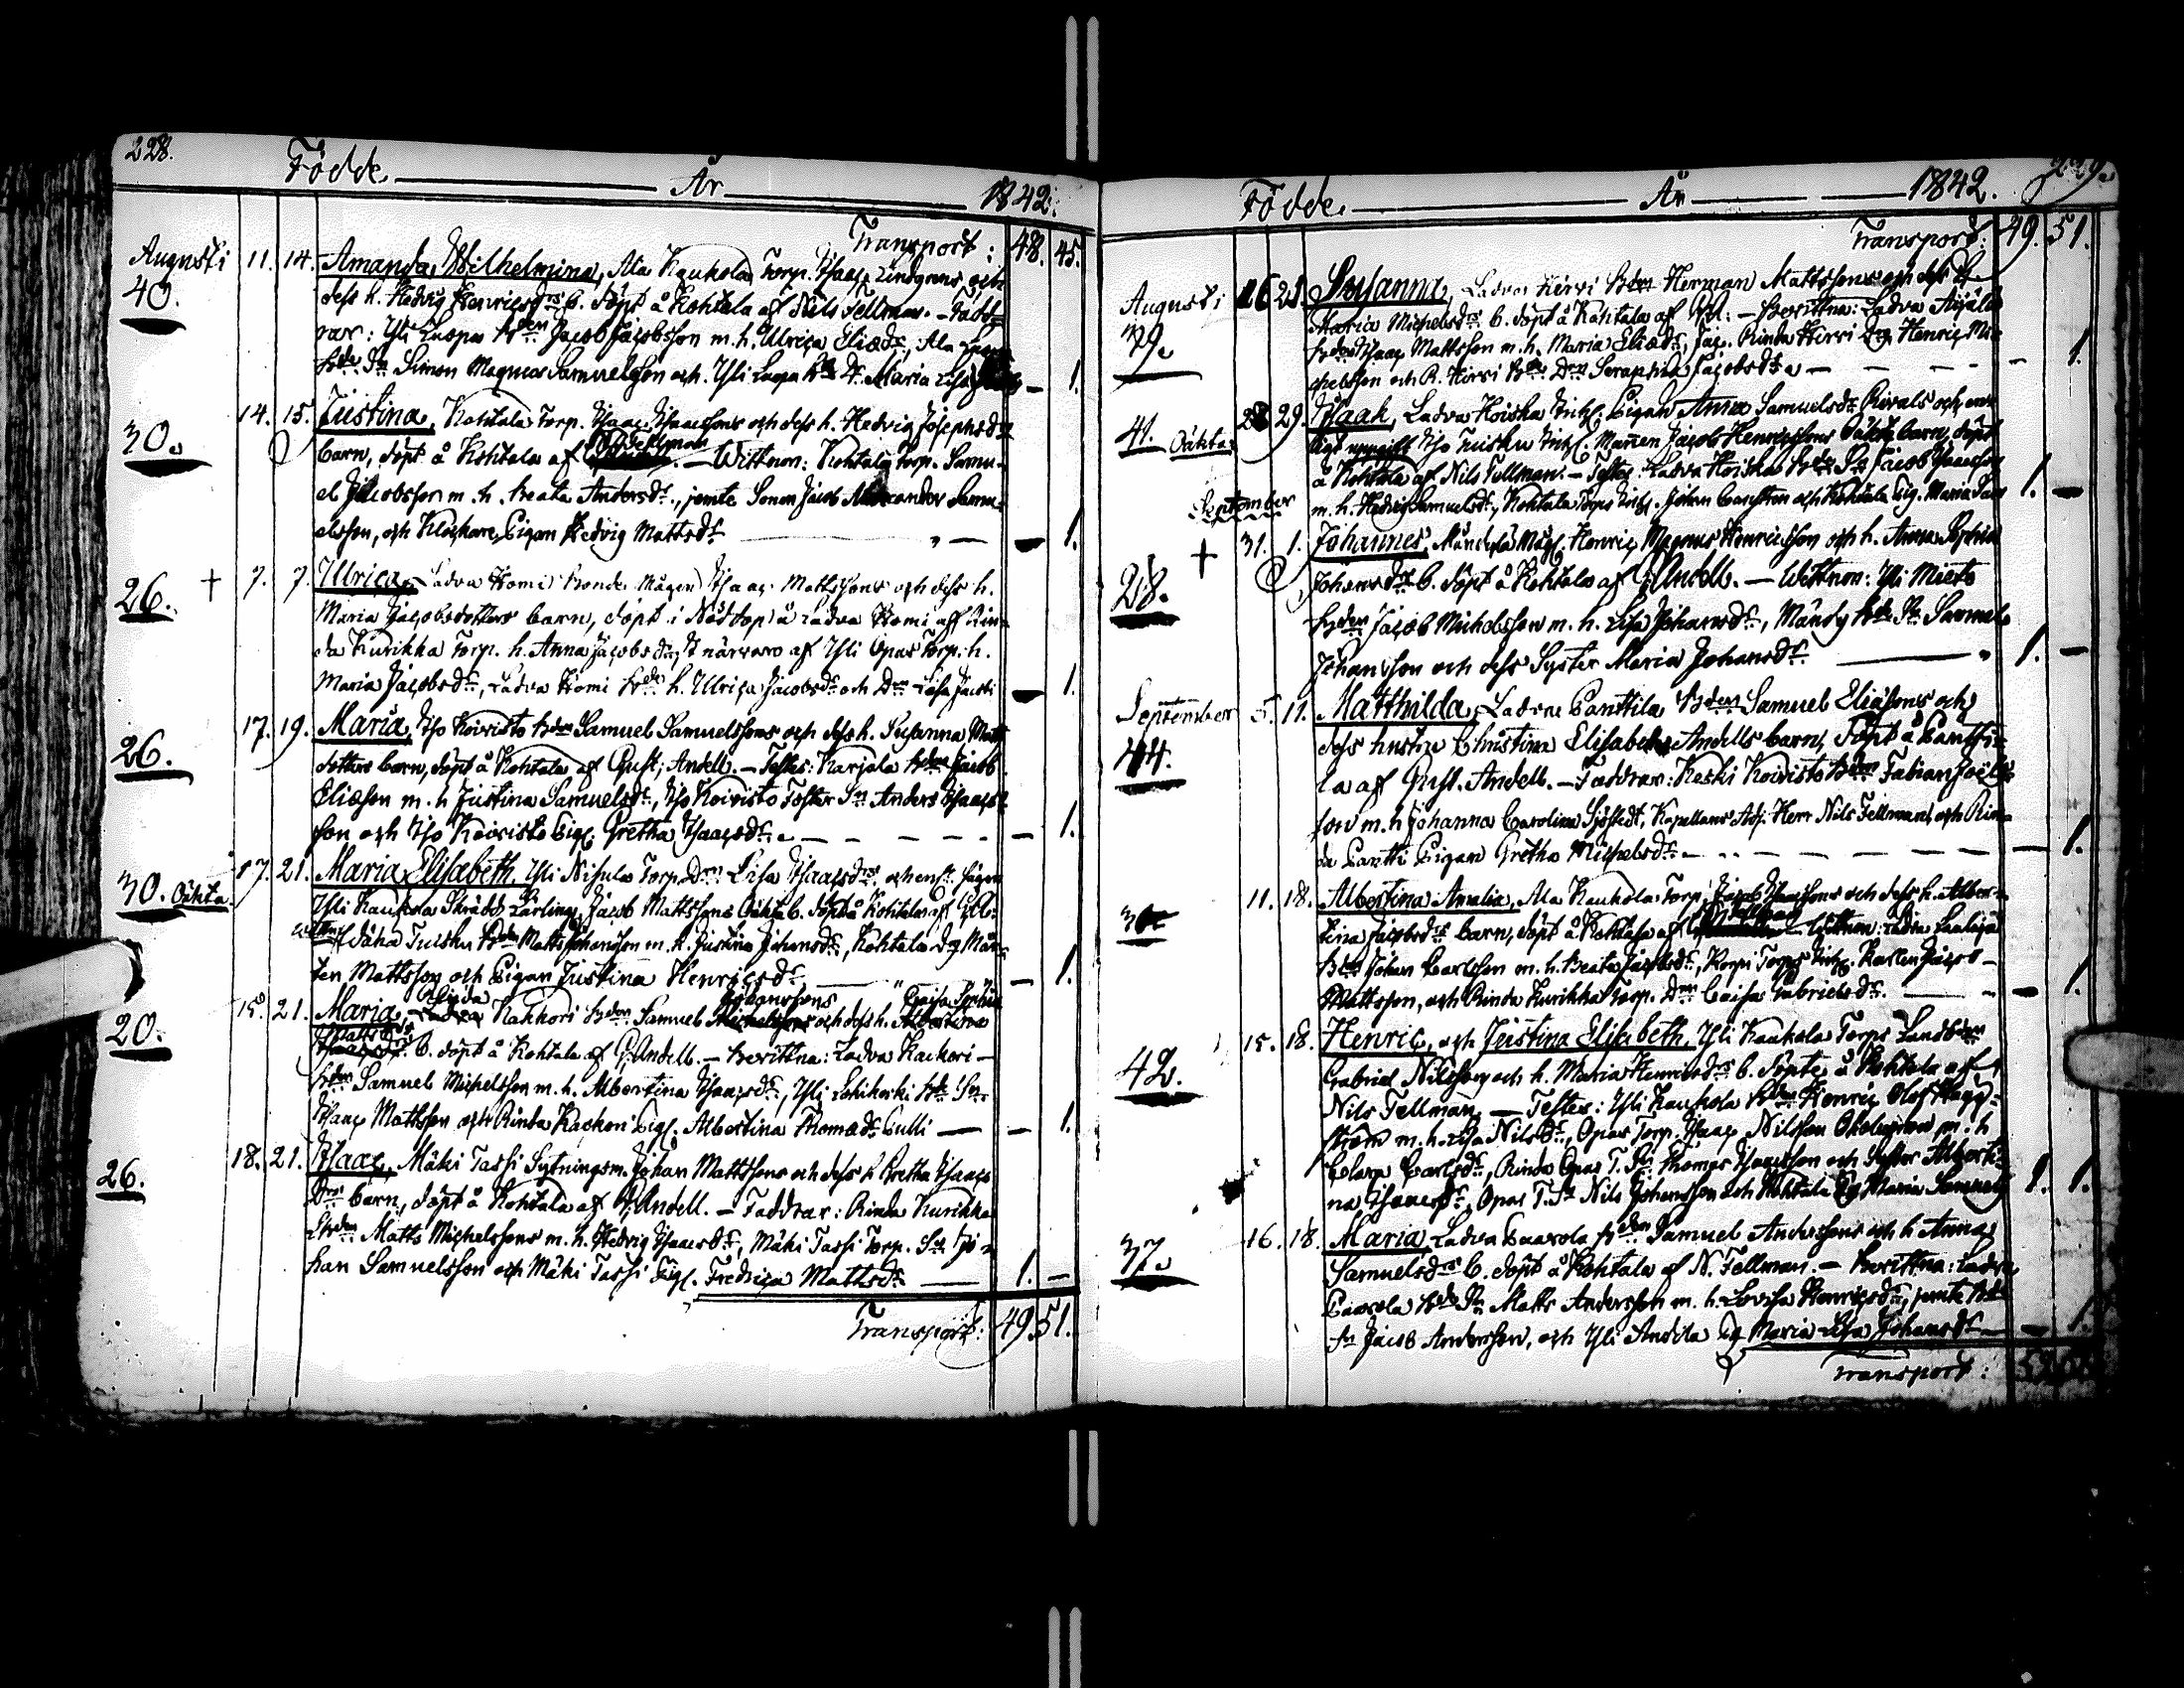 228.
Födde. År 1842.
Transport: 48. 45.
Augusti 11. 14. Amanda Wilhelmina, Ala Kaukola Torp. Isaac Lindgrens och
40. dess h. Hedvig Henricsdrs b. döpt å Kohtala af Nils Fellman. – Fadd-
rar: Yli Luopa Bden Jacob Jacobsson m. h. Ulrica Eliædr, Ala
Bde Sn Simon Magnus Samuelsson och Yli Luopa Bde Dr Maria Lisa – 1.
14. 15. Justina, Kohtala Torp. Isaac Isaacssons och dess h. Hedvig Josephsdrs
30. barn, döpt å Kohtala af N. Fellman. – Wittnen: Kohtala Torp. Samu-
el Jacobsson m. h. Beata Andersdr., jemte Sonen Jacob Alexander Samu-
elsson, och Klockare Pigan Hedvig Mattsdr – 1.
26. † 7. 7. Ulrica, Ladva Homi Bonde Mågen Isaac Mattssons och dess h.
Maria Jacobsdotters barn, döpt i Nöddop å Ladva Homi af Rin-
da Kurikka Torp. h. Anna Jacobsdr, i närvaro af Yli Opas Torp. h.
Maria Jacobsdr, Ladva Homi Bde h. Ulrica Jacobsdr och Dm Lisa Jacobs – 1.
17. 19. Maria, Iso Koivisto Bden Samuel Samuelssons och dess h. Susanna Matts
26. dotters barn, döpt å Kohtala af Gust. Andell. – Testes: Karjala Bden Jacob
Eliæson m. h. Justina Samuelsdr, Iso Koivisto Torp Sn Anders Isaacs-
son och Iso Koivisto Pig. Gretha Isaacsdr. – 1.
17. 21. Maria Elisabeth, Yli Nisula Torp. Drn Lisa Isaacsdrs och
30. Oäkta. Yli Kaukola Skrädd. Lärling Jacob Mattssons Oäkta b. döpt å Kohtala af
Wittn. Jäha Tuisku Bden Matts Johansson m. h. Justina Johansdr, Kohtala Dg Mår-
ten Mattsson och Pigan Justina Henricsdr – 1.
15. 21. Maria, Rinda Kakkori Bden Samuel Johanssons och dess h. Caisa Sophia
20. Mattsdrs b. döpt å Kohtala af G. Andell. – Bevittna: Ladva Kackori
Bden Samuel Michelsson m. h. Albertina Isaacsdr, Yli Lohikoski Bde Sn
Isaac Mattsson och Rinda Kackori Pig. Albertina Thomædr Pulli – 1.
18. 21. Isaac, Mäki Tassi Sytningsm. Johan Mattssons och dess h. Gretha Isaacs
26. Drs barn, döpt å Kohtala af G. Andell. – Faddrar: Rinda Kurikka
Bden Matts Michelssons m. h. Hedvig Isaacsdr, Mäki Tassi Torp. Sn Jo-
han Samuelsson och Mäki Tassi Pig. Fredrica Mattsdr 1. –
Transport: 49. 51.
229.
Födde. År 1842.
Transport: 49. 51.
Augusti 26 28. Susanna, Ladva Hirvi Bden Herman Mattssons och dess h.
39. Maria Michelsdrs b. döpt å Kohtala af – Bevittna: Ladva
Bden Isaac Mattsson m. h. Maria Eliædr, Rinda Hirvi Dg. Henric Mi-
chelsson och R. Hirvi Bde Drn Seraphina Jacobsdr – 1.
28 29. Isaak, Ladva Koiska Inh. Pigan Anna Samuelsdr Rivals och en-
41. Oäkta ligt uppgift Iso Tuisku Inh. Mannen Jacob Henricssons Oäkta barn, döpt
å Kohtala af Nils Fellman. – Testes: Ladva Koiska Bde Sn Jacob Isaacsson
September m. h. Hedvig Samuelsdr, Kohtala Torps Inh. Johan och Kohtala Pig. Maria 1. –
† 31. 1. Johannes, Mändylä Måg. Henric Magnus Henricsson och h. Anna Sophia
28. Johansdrs b. döpt å Kohtala af G. Andell. – Wittnen: Yli Mieto
Bden Jacob Michelsson m. h. Lisa Johansdr, Mändy Bde Sn Samuel
Johansson och dess Syster Maria Johansdr. 1. –
September 5. 11. Matthilda, Ladva Panttila Bden Samuel Eliæsons och
44. dess hustru Christina Elisabeth Andells barn, Döpt å Pantti-
la af Gust. Andell. – Faddrar: Keski Koivisto Bden Fabian Joels-
son m. h. Johanna Carolina Sjöstedt, Kapellans Adj. Herr Nils Fellman, och Rin-
da Pantti Pigan Gretha Michelsdr – 1.
11. 18. Albertina Amalia, Ala Kaukola Torp. Jacob Isaacssons och dess h. Alber-
tina Jacobsdrs barn, döpt å Kohtala af – Wittnen: Ladva
Bden Johan Carlsson m. h. Beata Jacobsdr, Korpi Torps Inh. Karlen Jacob
Mattsson, och Rinda Kurikka Torp. Drn Caisa Gabrielsdr. – 1.
15. 18. Henric, och Justina Elisabeth, Yli Kaukola Torps Landbden
42. Gabriel Nilsson och h. Maria Henricsdrs b. döpte å Kohtala af
Nils Fellman. – Testes: Yli Kaukola Bden Henric Olof Hägg-
ström m. h. Lisa Nilsdr, Opas Torp. Isaac Nilsson m. h.
Clara Carlsdr, Rinda Opas T. Sn Thomas Isaacsson och Syster Alberti-
na Isaacsdr, Opas T. Sn Nils Johansson och Kohtala Pig Maria 1. 1.
16. 18. Maria, Ladva Paavola Bden Samuel Anderssons och h. Anna
37. Samuelsdrs b. döpt å Kohtala af N. Fellman. – Bevittna: Ladva
Paavola Bde Sn Matts Andersson m. h. Lovisa Henricsdr, jemte Bde
Sn Jacob Andersson, och Yli Anttila Pig Maria Lisa Johansdr – 1.
Transport: